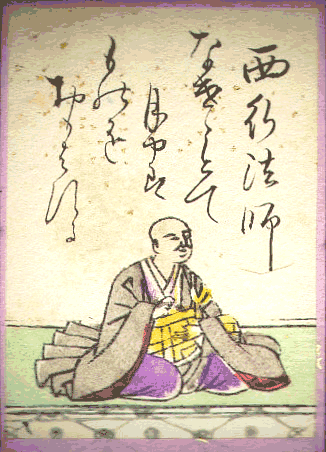 西行法師
なげゝとて
月やは
ものを
おもはする